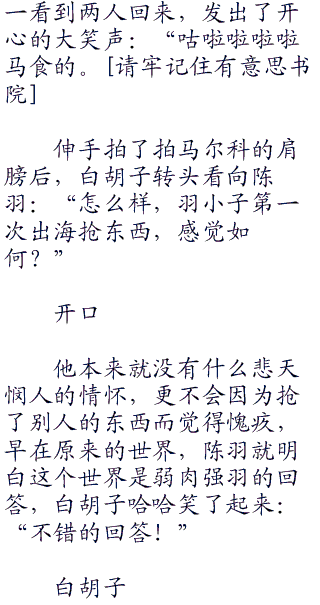 一看到两人回来，发出了开
心的大笑声：“咕啦啦啦啦
马食的。[请牢记住有意思书
院]
伸手拍了拍马尔科的肩
膀后，白胡子转头看向陈
羽：“怎么样，羽小子第一
次出海抢东西，感觉如
何？”
开口
他本来就没有什么悲天
悯人的情怀，更不会因为抢
了别人的东西而觉得愧疚，
早在原来的世界，陈羽就明
白这个世界是弱肉强羽的回
答，白胡子哈哈笑了起来：
“不错的回答！”
白胡子